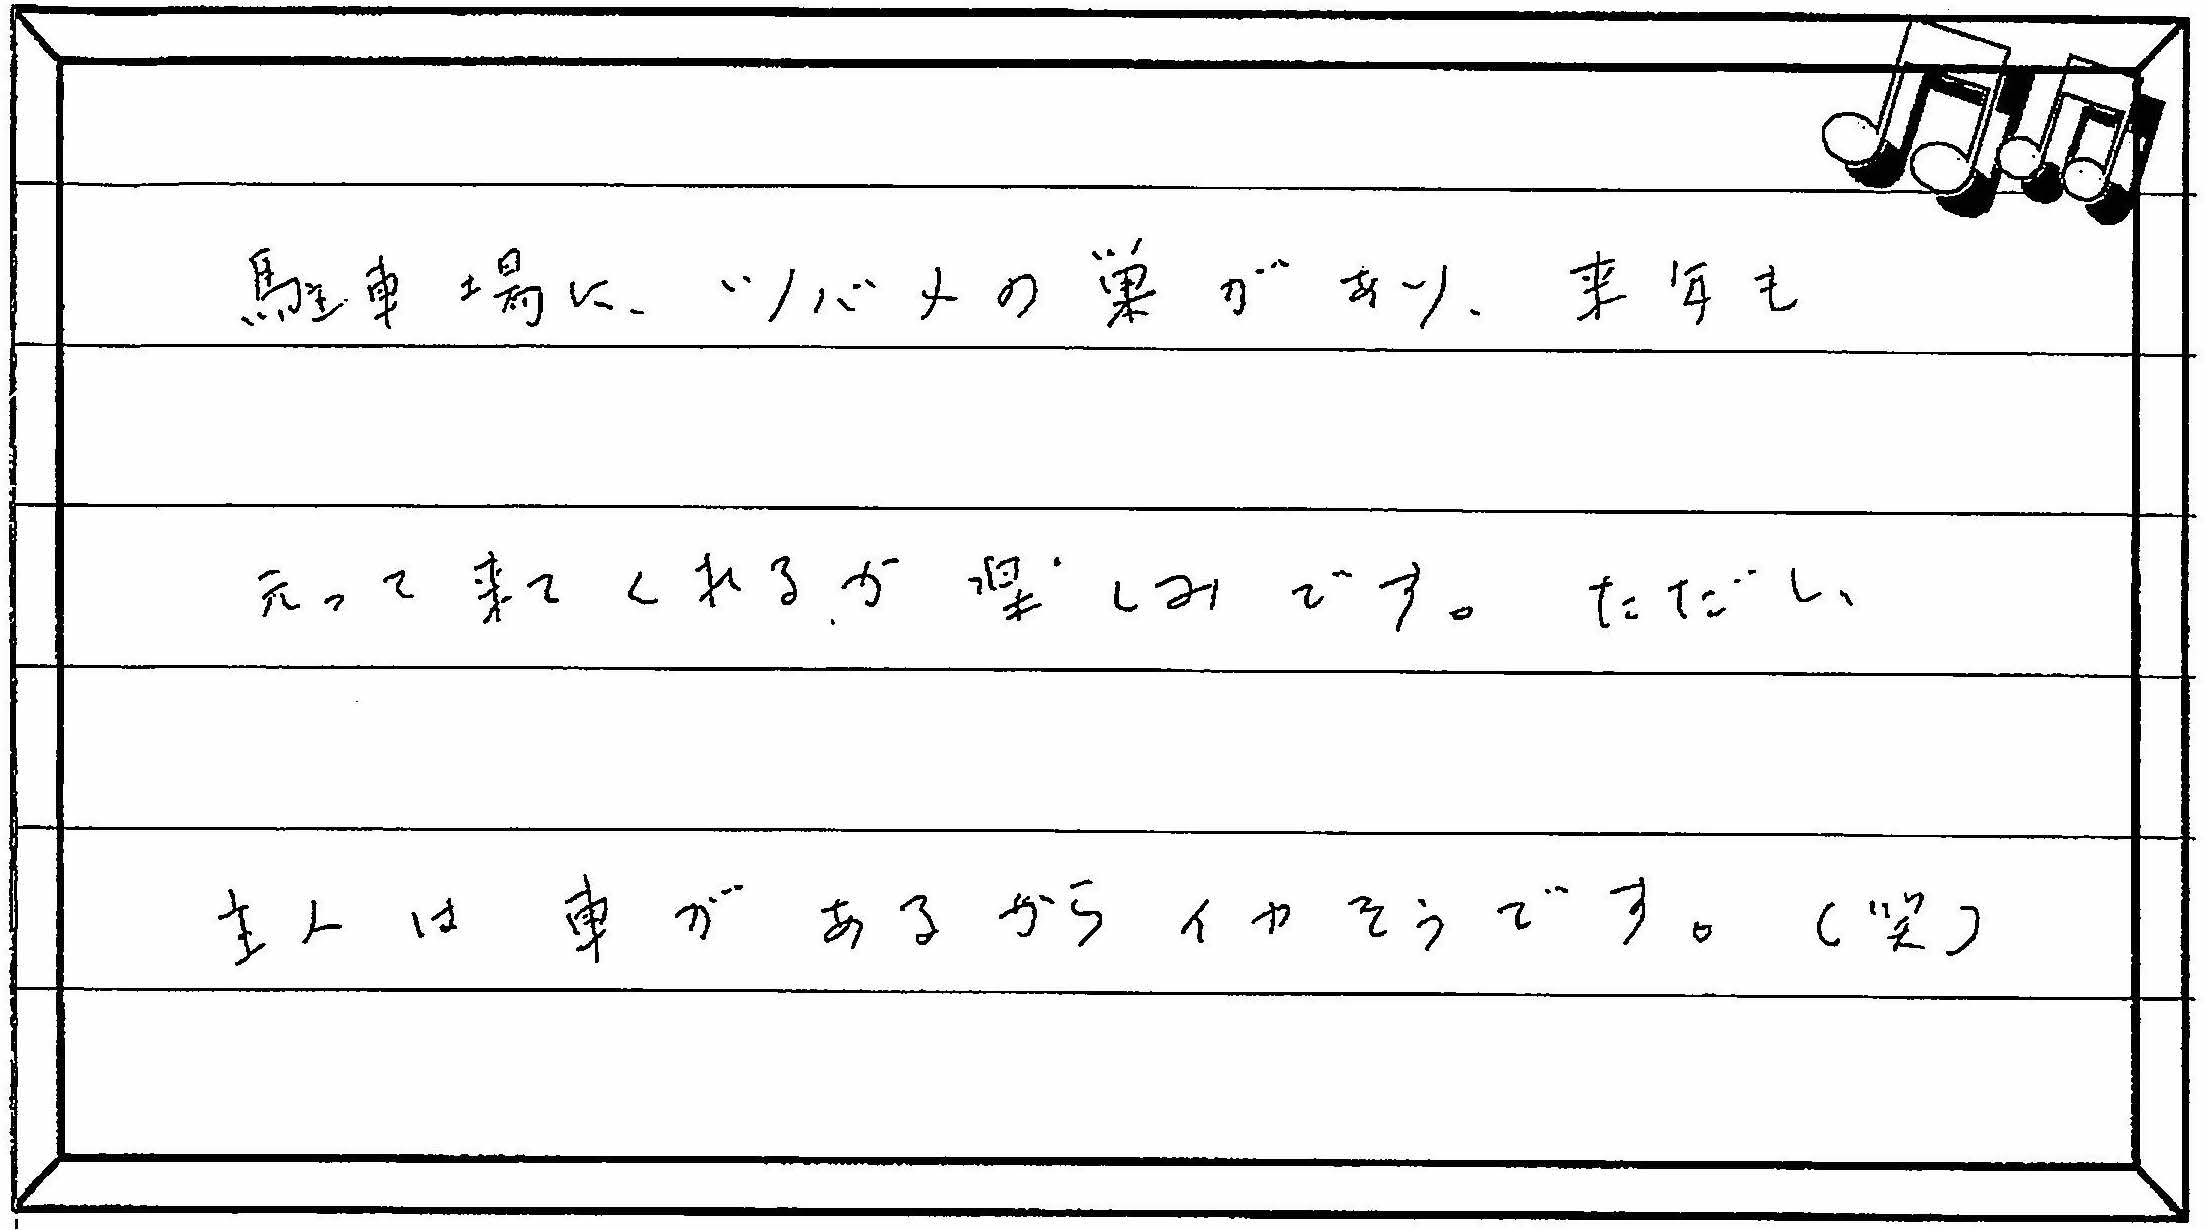 駐車場に、ツバメの巣があり、来年も
元って来てくれるか楽しみです。ただし、
主人は車があるからイヤそうです。(笑)